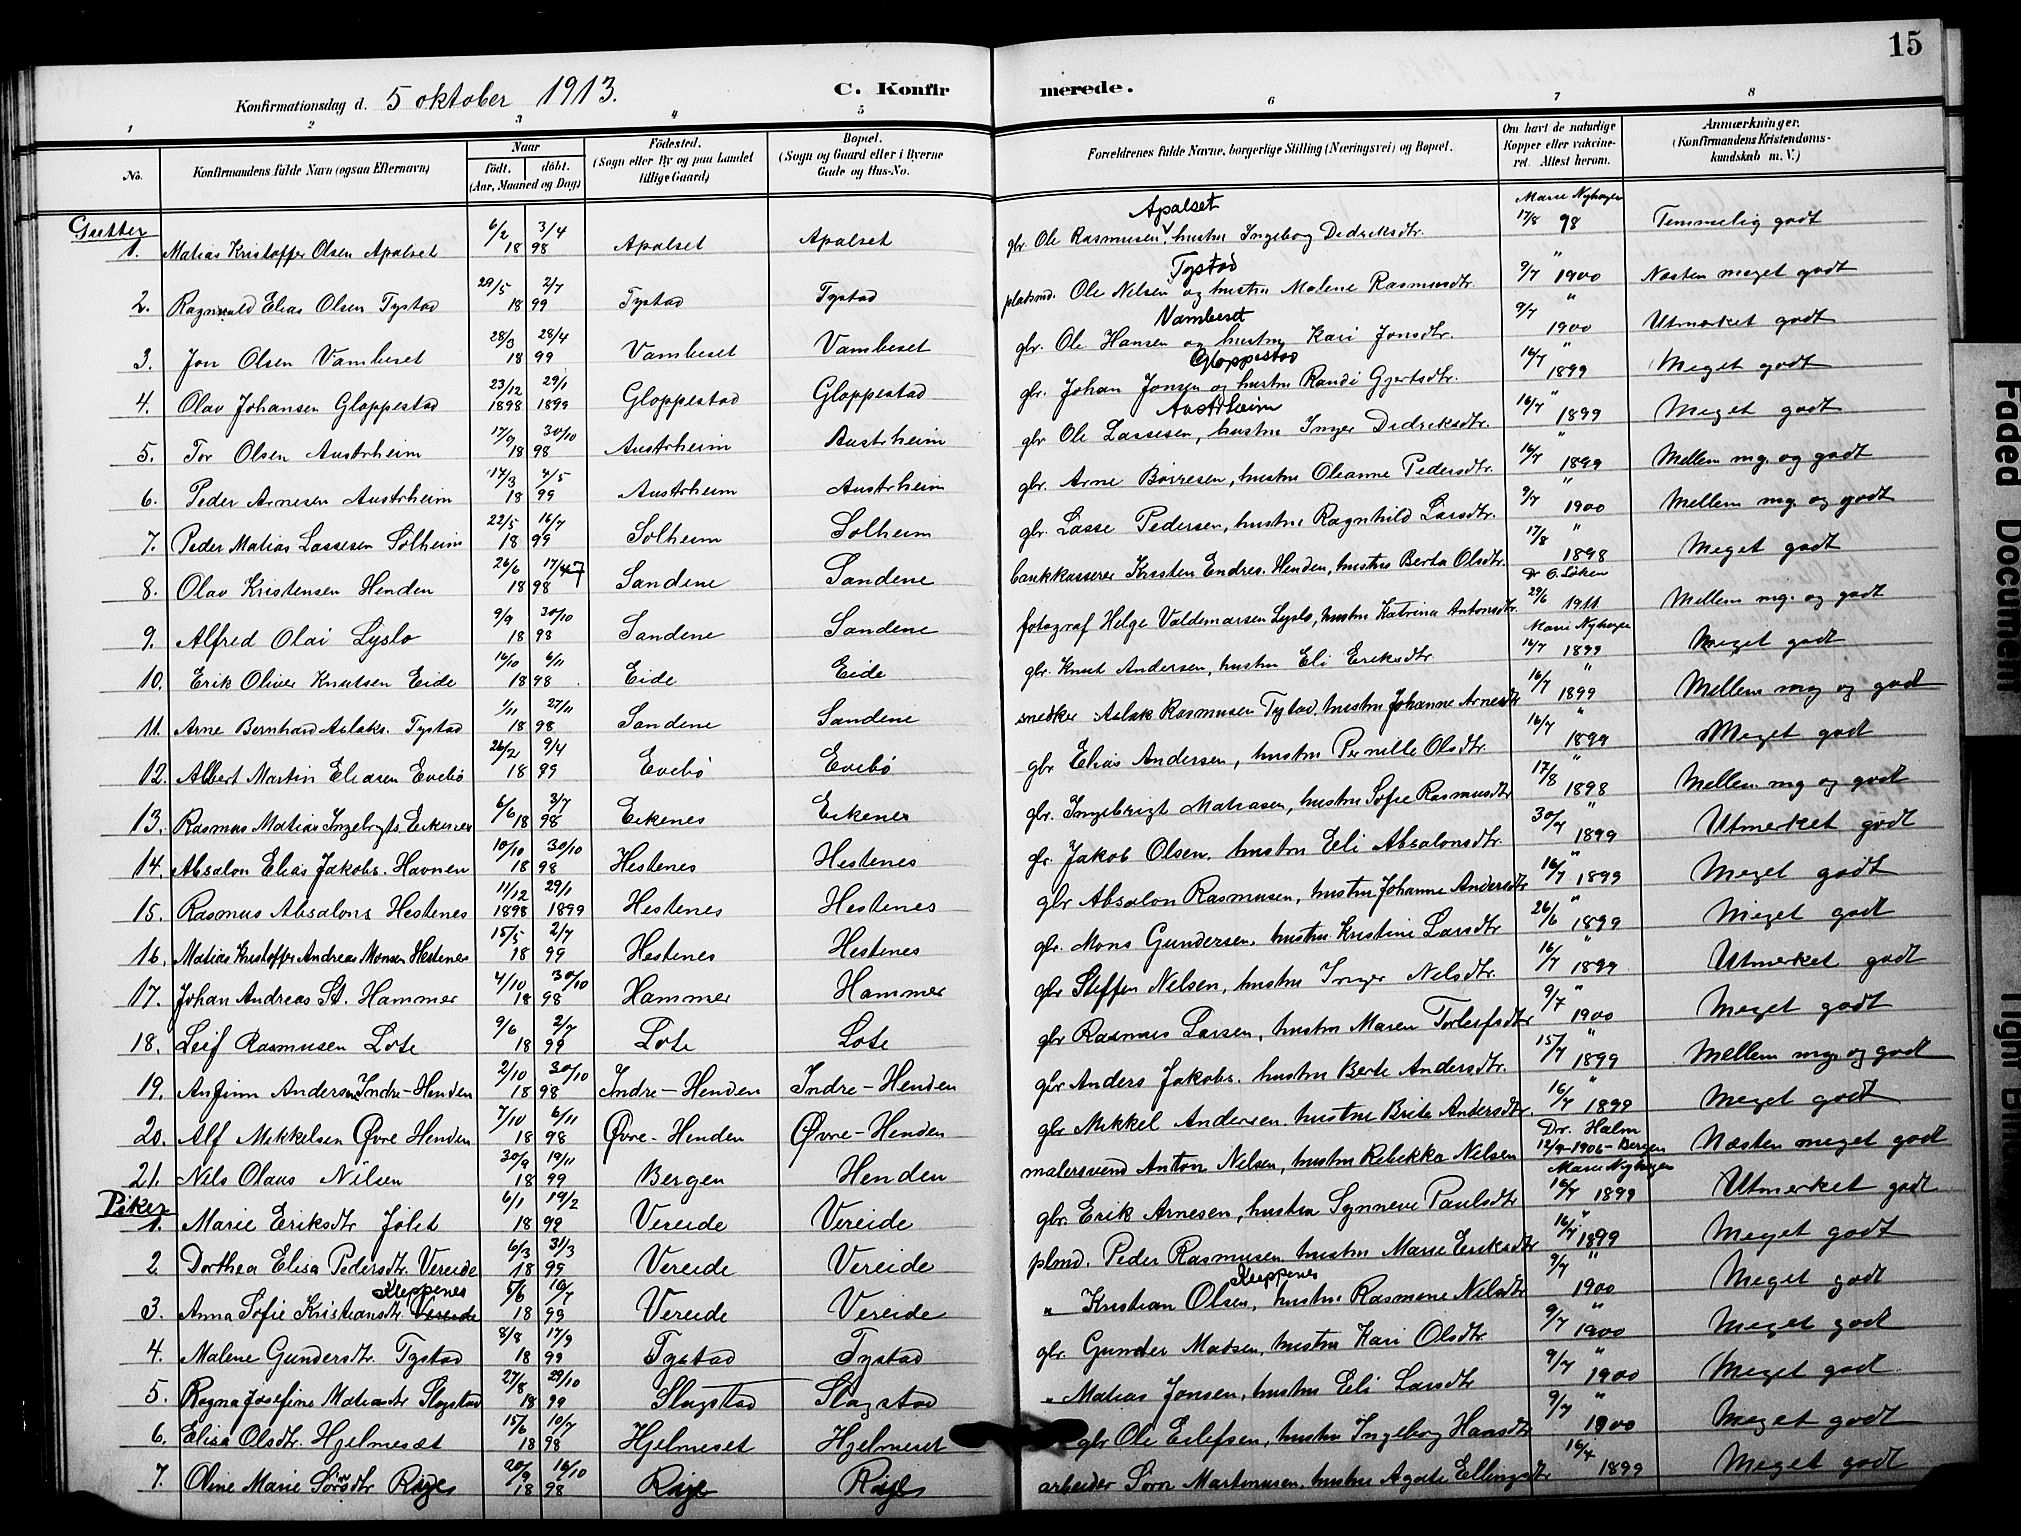 15
Konfirmationsdag d. 5 oktober 1913. C. Konfirmerede.
1 2 3 4 5 6 7 8
No. Konfirmandens fulde Navn (ogsaa Efternavn) Naar født. døbt. (Aar, Maaned og Dag) Fødested. (Sogn eller By og paa Landet tillige Gaard) Bopæl. (Sogn og Gaard eller i Byerne Gade og Hus-No. Forældrenes fulde Navne, borgerlige Stilling (Næringsvei) og Bopæl. Om havt de naturlige Kopper eller vaccineret. Attest herom. Anmærkninger. (Konfirmandens Kristendomskundskab m. V.)
Gutter
1. Matias Kristoffer Olsen Apalset 6/2 3/4 1898 Apalset Apalset gbr. Ole Rasmusen Apalset, hustru Ingeborg Didriksdtr. Marie Nyhagen 17/8 98 Temmelig godt
2. Ragnvald Elias Olsen Tystad 29/5 2/7 1899 Tystad Tystad platsmd. Ole Nilsen Tystad og hustru Malene Rasmusdtr. 9/7 " 1900 Næsten meget godt
3. Jon Olsen Vambeset 28/3 28/4 1899 Vambeset Vambeset gbr. Ole Hansen Vambeset og hustru Kari Jonsdtr. 9/7 " 1900 Utmerket godt
4. Olav Johansen Gloppestad 23/12 1898 29/1 1899 Gloppestad Gloppestad gbr. Johan Jonsen Gloppestad og hustru Randi Gjertsdtr. 16/7 " 1899 Meget godt
5. Tor Olsen Austrheim 17/9 30/10 1898 Austrheim Austrheim gbr. Ole Lassesen Austrheim, hustru Inger Didriksdtr. 16/7 " 1899 Meget godt
6. Peder Arnesen Austrheim 17/3 4/5 1899 Austrheim Austrheim gbr. Arne Børresen, hustru Oleanne Pedersdtr. 16/7 1899 Mellem mg. og godt
7. Peder Matias Lassesen Solheim 22/5 16/7 1899 Solheim Solheim gbr. Lasse Pedersen, hustru Ragnhild Larsdtr. 9/7 " 1900 Mellem mg. og godt
8. Olav Kristensen Henden 26/6 17/7 1898 Sandene Sandene bankkasserer Kristen Endres. Henden, hustru Berta Olsdtr. 17/8 " 1898 Meget godt
9. Alfred Olai Lyslo 9/9 30/10 1898 Sandene Sandene fotograf Helge Valdemarsen Lyslo, hustru Katrina Antonsdtr. Dr O. Løken 29/6 1911 Mellem mg. og godt
10. Erik Oliver Knutsen Eide 16/10 6/11 1898 Eide Eide gbr. Knut Andersen, hustru Eli Eriksdtr Marie Nyhagen 16/7 1899 Meget godt
11. Arne Bernhard Aslaks. Tystad 1/11 27/11 1898 Sandene Sandene snedker Aslak Rasmusen Tystad, hustru Johanne Arnesdtr 16/7 " 1899 Mellem mg og godt
12. Albert Martin Eliasen Evebø 26/2 9/4 1899 Evebø Evebø gbr Elias Andersen, hustru Pernille Olsdtr. 16/7 " 1899 Meget godt
13. Rasmus Matias Ingebrgts. Eikenes 6/6 3/7 1898 Eikenes Eikenes gbr. Ingebrigt Matiasen, hustru Sofie Rasmusdtr 17/8 " 1898 Mellem mg og godt
14. Absalon Elias Jakobs. Havnen 10/10 30/10 1898 Hestenes Hestenes gbr. Jakob Olsen. hustru Eli Absalonsdtr. 30/7 " 1899 Utmerket godt
15. Rasmus Absalons Hestenes 11/12 1898 29/1 1899 Hestenes Hestenes gbr Absalon Rasmusen, hustru Johanne Andersdtr 16/7 " 1899 Meget godt
16. Matias Kristoffer Andreas Monsen Hestenes 15/5 2/7 1899 Hestenes Hestenes gbr. Mons Gundersen. hustru Kristine Larsdtr 26/6 " 1899 Meget godt
17. Johan Andreas St. Hammer 4/10 30/10 1898 Hammer Hammer gbr Steffen Nilsen, hustru Inger Nilsdtr. 16/7 " 1899 Utmerket godt
18. Leif Rasmusen Lote 9/6 2/7 1899 Lote Lote gbr Rasmus Larsen, hustru Maren Torleifsdtr 9/7 " 1900 Meget godt
19. Anfinn Andersen Indre-Henden 2/10 30/10 1898 Indre-Henden Indre-Henden gbr Anders Jakobs. hustru Berte Andersdtr. 15/7 " 1899 Mellem mg. og godt
20. Alf Mikkelsen Øvre Henden 7/10 6/11 1898 Øvre-Henden Øvre-Henden gbr Mikkel Andersen. hustru Brite Andersdtr. 16/7 " 1899 Meget godt
21. Nils Olaus Nilsen 30/9 19/11 1899 Bergen Henden malersvend Anton Nilsen, hustru Rebekka Nilsen Dr. Holm 12/9-1906-Bergen Næsten meget godt
Piker
1. Marie Eriksdtr Jølet 6/1 19/2 1899 Vereide Vereide gbr. Erik Arnesen, hustru Synneve Paulsdtr Marie Nyhagen 16/7 1899 Utmerket godt
2. Dorthea Elisa Pedersdtr. Vereide 6/3 31/3 1899 Vereide Vereide plmd. Peder Rasmusen, hustru Marie Eriksdtr 16/7 " 1899 Meget godt
3. Anna Sofie Kristiansdtr. Kleppenes Vereide 5/6 16/7 1899 Vereide Vereide " Kristian Olsen Kleppenes, hustru Rasmine Nilsdtr 9/7 " 1900 Meget godt
4. Malene Gundersdtr. Tystad 8/8 17/9 1899 Tystad Tystad gbr. Gunder Madsen, hustru Kari Olsdtr 9/7 " 1900 Meget godt
5. Ragna Josefine Matiasdtr Slagstad 27/8 29/10 1899 Slagstad Slagstad " Matias Jonsen, hustru Eli Larsdtr 9/7 " 1900 Meget godt
6. Elisa Olsdtr. Hjelmeset 15/6 10/7 1898 Hjelmeset Hjelmeset gbr Ole Eilefsen, hustru Ingeborg Hansdtr 9/7 " 1900 Meget godt
7. Oline Marie Sørnsdtr Ryge 20/9 16/10 1898 Ryge Ryge arbeider Sørn Martinusen, hustru Agate Ellingsdtr 16/7 1899 Meget godt
Faded Document
Tight Bind